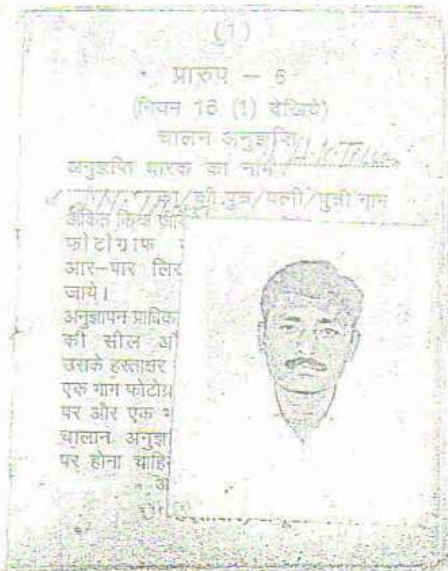 (1)
प्रारुप – 6
(नियम 16 (1) देखिये)
चालन अनुज्ञप्ति
अनुज्ञप्ति धारक का नाम
का/की पुत्र/पत्नी/पुत्री नाम
अंकित किया
फोटोग्राफ
आर-पार लिर
जाये।
अनुज्ञापन प्राधिक
की सील औ
उसके हस्ताक्षर
एक भाग फोटोग्र
पर और एक भ
चालान अनुज्ञ
पर होना चाहि